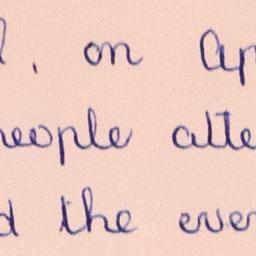 , on Ap
people atte
d the even